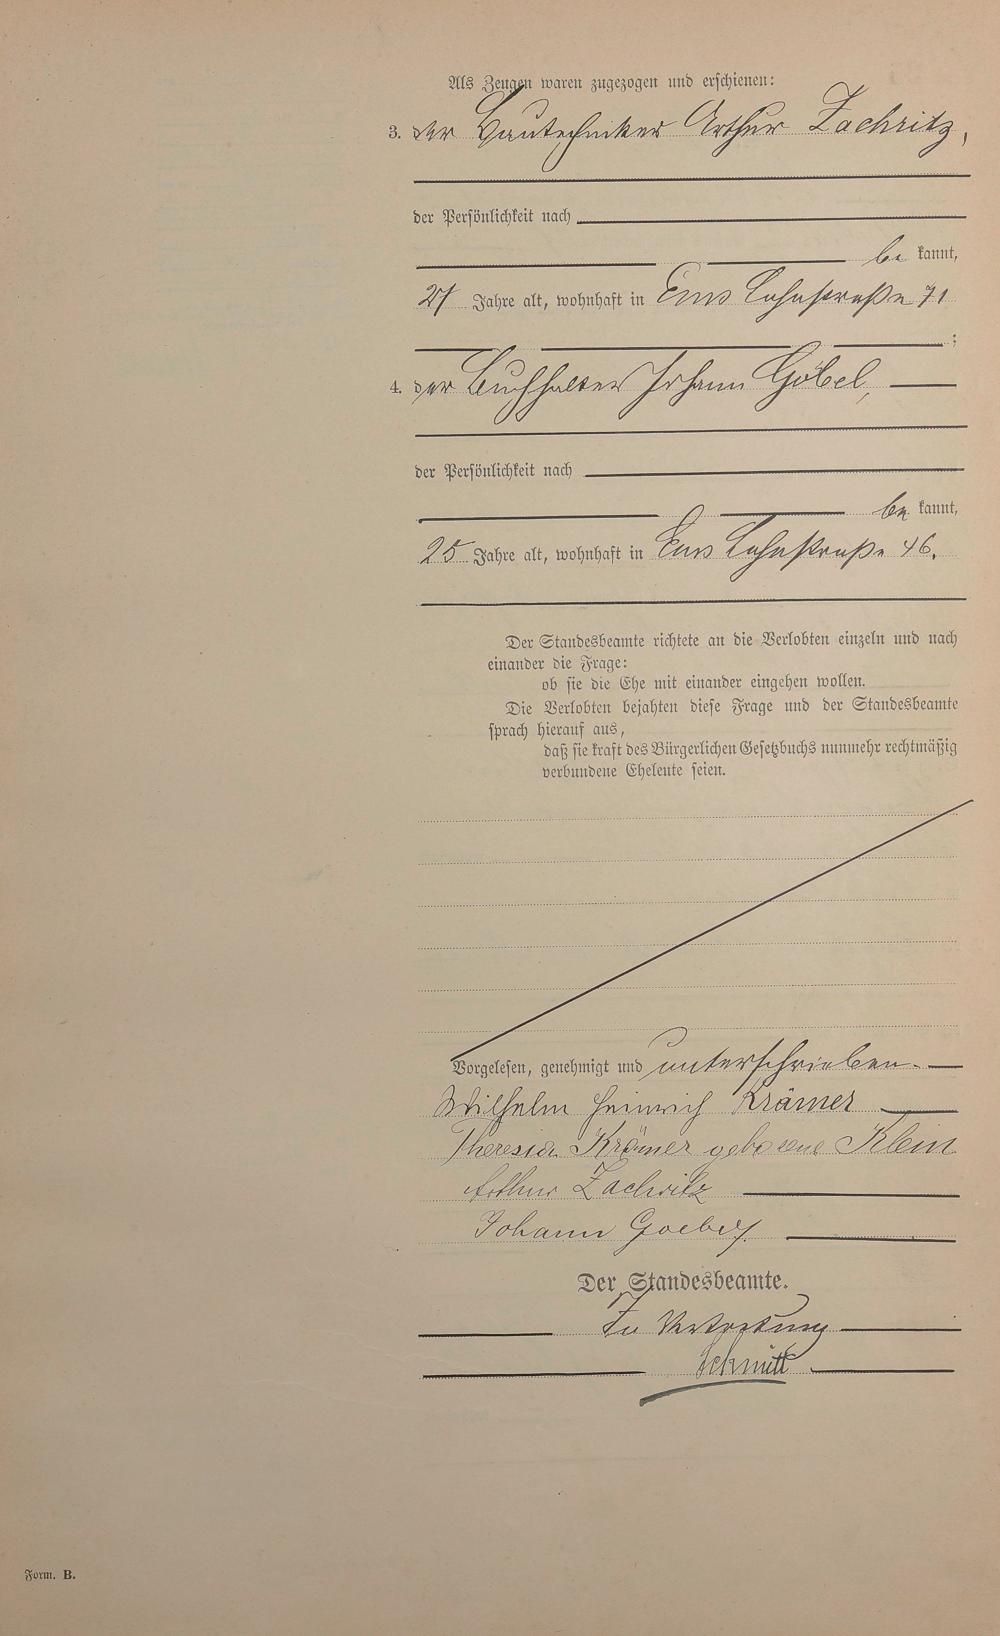 Als Zeugen waren zugezogen und erschienen:
3. der Bautechniker Arthur Zachritz,
der Persönlichkeit nach
be kannt,
27 Jahre alt, wohnhaft in Ems Lahnstraße 71
;
4. der Buchhalter Johann Göbel,
der Persönlichkeit nach
be kannt,
25 Jahre alt, wohnhaft in Ems Lahnstraße 46.
Der Standesbeamte richtete an die Verlobten einzeln und nach
einander die Frage:
ob sie die Ehe mit einander eingehen wollen.
Die Verlobten bejahten diese Frage und der Standesbeamte
sprach hierauf aus,
daß sie kraft des Bürgerlichen Gesetzbuchs nunmehr rechtmäßig
verbundene Eheleute seien.
Vorgelesen, genehmigt und unterschrieben.
Wilhelm Heinrich Krämer
Theresia Krämer geborene Klein
Arthur Zachritz
Johann Goebel
Der Standesbeamte.
In Vertretung
Schmitt
Form. B.